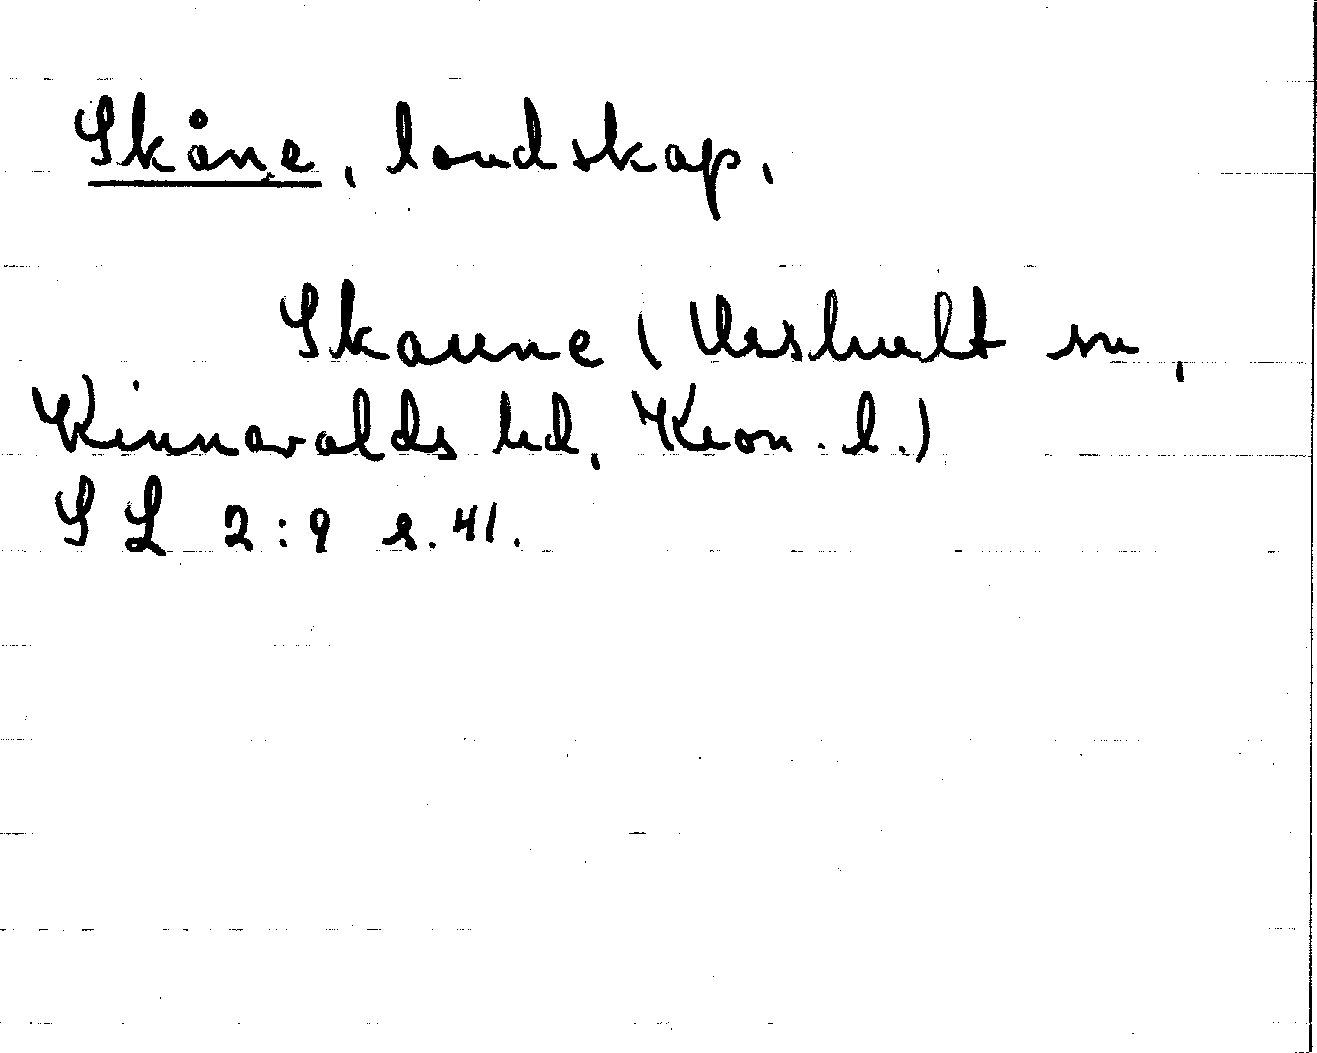 Skåne, landskap,
Skaune (Urshult sn,
Kinnevalds hd, Kron. l.)
SL 2:9 s. 41.